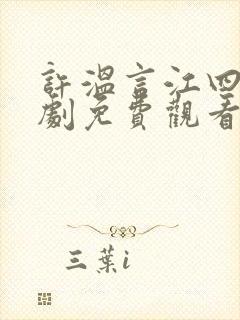 許溫言江四
劇免費觀看
三葉i